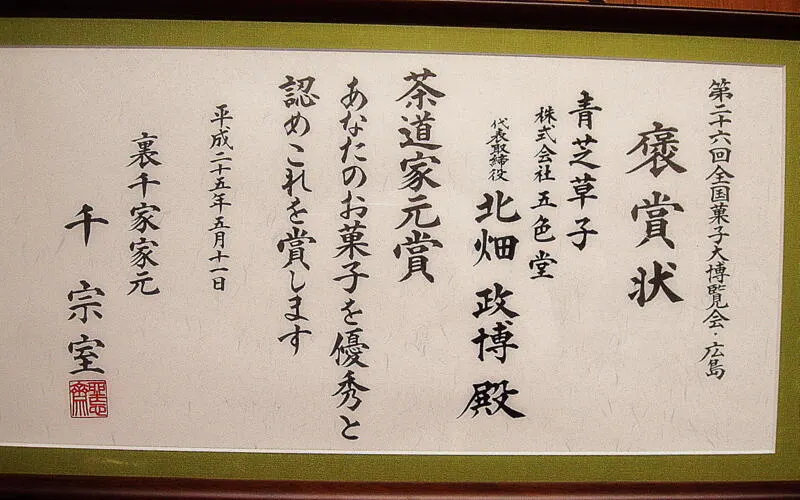 第二十六回全国菓子大博覧会・広島
褒賞状
青芝草子
株式会社 五色堂
代表取締役 北畑 政博 殿
茶道家元賞
あなたのお菓子を優秀と
認めこれを賞します
平成二十五年五月十一日
裏千家家元
千 宗室